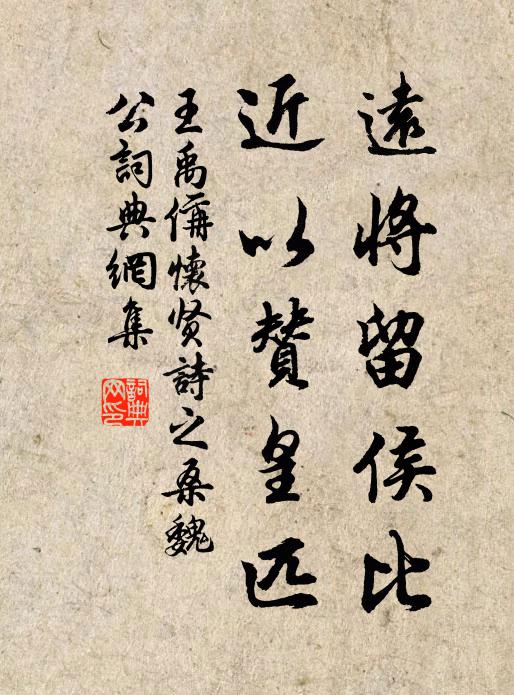 遠將留侯比
近以贊皇匹
王禹偁懷贤詩之桑魏
公詞典網集
詞典
网印